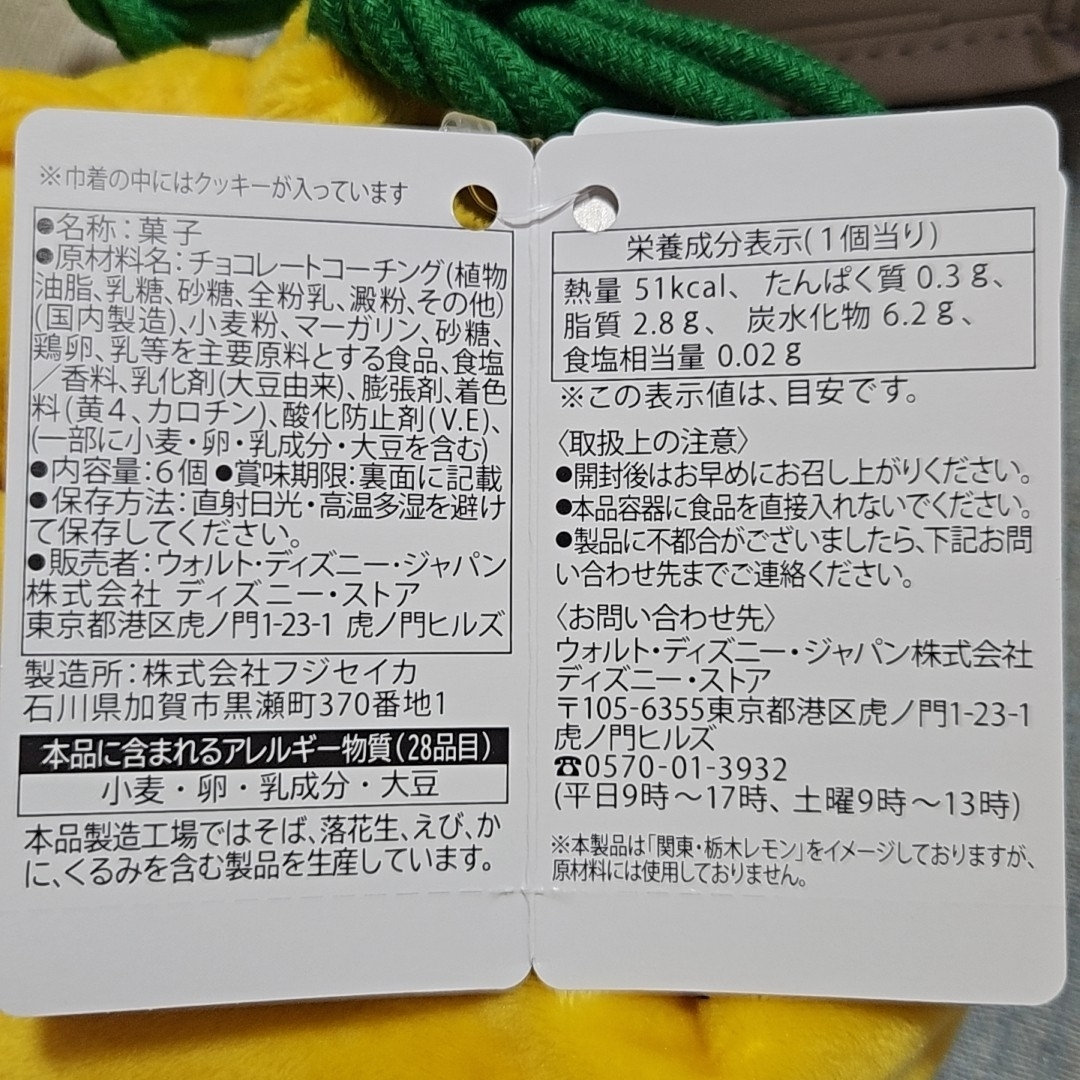 ※巾着の中にはクッキーが入っています
●名称：菓子
●原材料名：チョコレートコーチング(植物
油脂、乳糖、砂糖、全粉乳、澱粉、その他)
(国内製造)、小麦粉、マーガリン、砂糖、
鶏卵、乳等を主要原料とする食品、食塩
／香料、乳化剤(大豆由来)、膨張剤、着色
料(黄４、カロチン)、酸化防止剤(V.E)、
(一部に小麦・卵・乳成分・大豆を含む)
●内容量：６個 ●賞味期限：裏面に記載
●保存方法：直射日光・高温多湿を避け
て保存してください。
●販売者：ウォルト・ディズニー・ジャパン
株式会社 ディズニー・ストア
東京都港区虎ノ門1-23-1 虎ノ門ヒルズ
製造所：株式会社フジセイカ
石川県加賀市黒瀬町370番地1
本品に含まれるアレルギー物質(28品目)
小麦・卵・乳成分・大豆
本品製造工場ではそば、落花生、えび、か
に、くるみを含む製品を生産しています。
栄養成分表示(１個当り)
熱量 51kcal、 たんぱく質 0.3ｇ、
脂質 2.8ｇ、 炭水化物 6.2ｇ、
食塩相当量 0.02ｇ
※この表示値は、目安です。
〈取扱上の注意〉
●開封後はお早めにお召し上がりください。
●本品容器に食品を直接入れないでください。
●製品に不都合がございましたら、下記お問
い合わせ先までご連絡ください。
〈お問い合わせ先〉
ウォルト・ディズニー・ジャパン株式会社
ディズニー・ストア
〒105-6355東京都港区虎ノ門1-23-1
虎ノ門ヒルズ
☎0570-01-3932
(平日9時～17時、土曜9時～13時)
※本製品は「関東・栃木レモン」をイメージしておりますが、
原材料には使用しておりません。